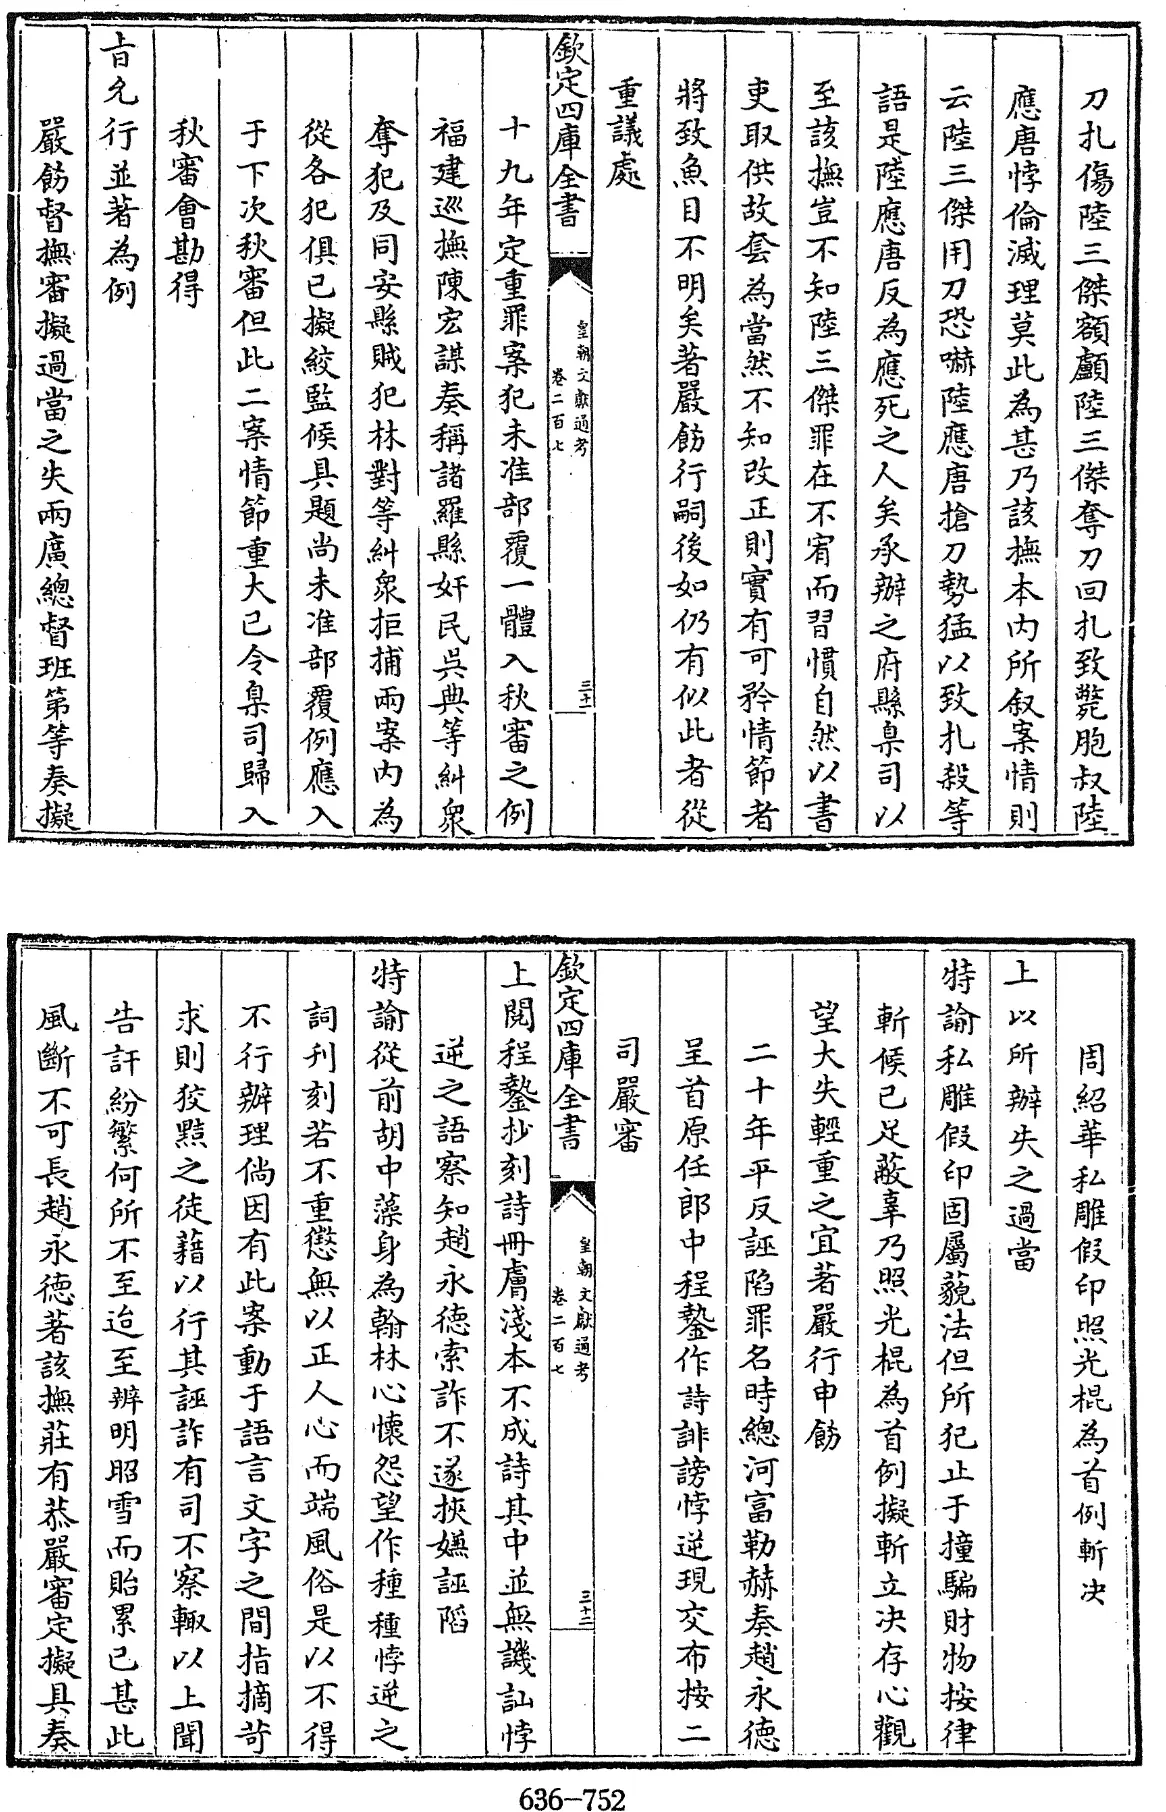 刀扎傷陸三傑額顱陸三傑奪刀回扎致斃胞叔陸
應唐悖倫滅理莫此為甚乃該撫本内所叙案情則
云陸三傑用刀恐嚇陸應唐搶刀勢猛以致扎殺等
語是陸應唐反為應死之人矣承辦之府縣臬司以
至該撫豈不知陸三傑罪在不宥而習慣自然以書
吏取供故套為當然不知改正則實有可矜情節者
將致魚目不明矣著嚴飭行嗣後如仍有似此者從
重議處
欽定四庫全書
皇朝文獻通考
卷二百七
三十一
十九年定重罪案犯未准部覆一體入秋審之例
福建巡撫陳宏謀奏稱諸羅縣奸民吳典等糾衆
奪犯及同安縣賊犯林對等糾衆拒捕兩案内為
從各犯俱已擬絞監候具題尚未准部覆例應入
于下次秋審但此二案情節重大已令臬司歸入
秋審會勘得
旨允行並著為例
嚴飭督撫審擬過當之失兩廣總督班第等奏擬
周紹華私雕假印照光棍為首例斬决
上以所辦失之過當
特諭私雕假印固屬藐法但所犯止于撞騙財物按律
斬候已足蔽辜乃照光棍為首例擬斬立决存心觀
望大失輕重之宜著嚴行申飭
二十年平反誣陷罪名時總河富勒赫奏趙永德
呈首原任郎中程鍪作詩誹謗悖逆現交布按二
司嚴審
欽定四庫全書
皇朝文獻通考
卷二百七
三十二
上閱程鍪抄刻詩冊膚淺本不成詩其中並無譏訕悖
逆之語察知趙永德索詐不遂挾嫌誣陷
特諭從前胡中藻身為翰林心懷怨望作種種悖逆之
詞刋刻若不重懲無以正人心而端風俗是以不得
不行辦理倘因有此案動于語言文字之間指摘苛
求則狡黠之徒藉以行其誣詐有司不察輙以上聞
告訐紛繁何所不至迨至辨明昭雪而貽累已甚此
風斷不可長趙永德著該撫莊有恭嚴審定擬具奏
636-752